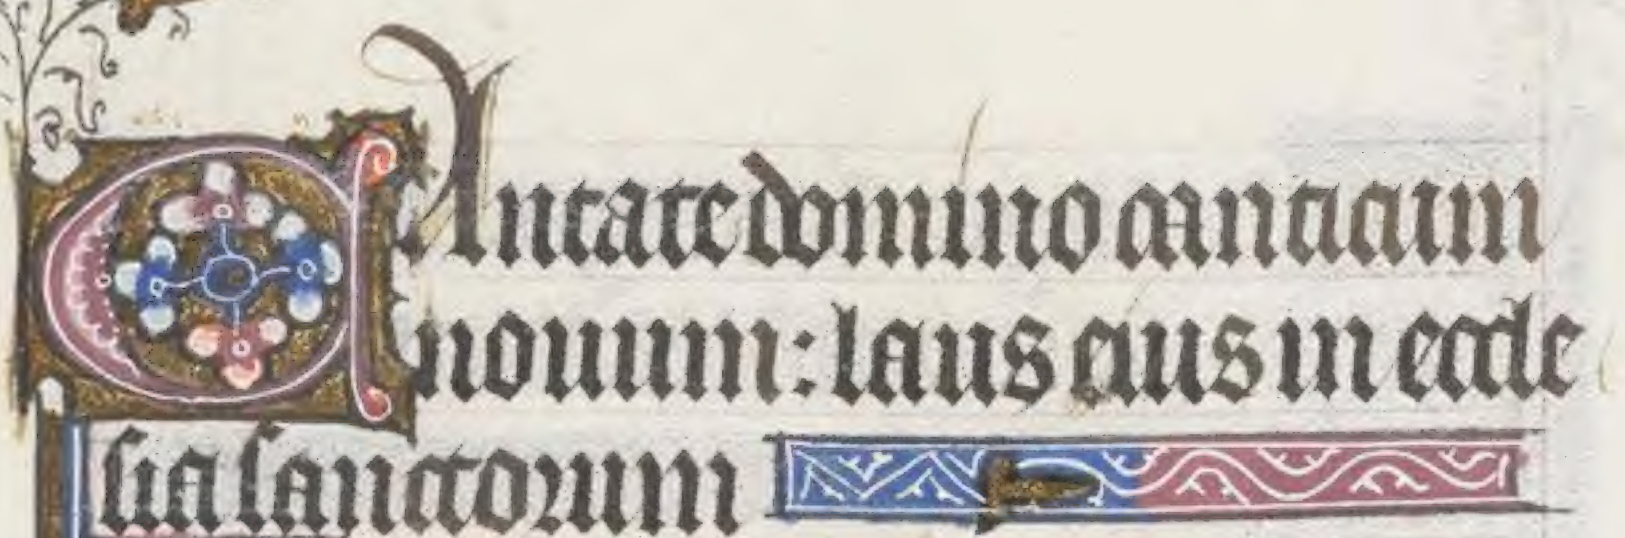 CAntate domino canticum
nouum: laus eius in eccle
sia sanctorum